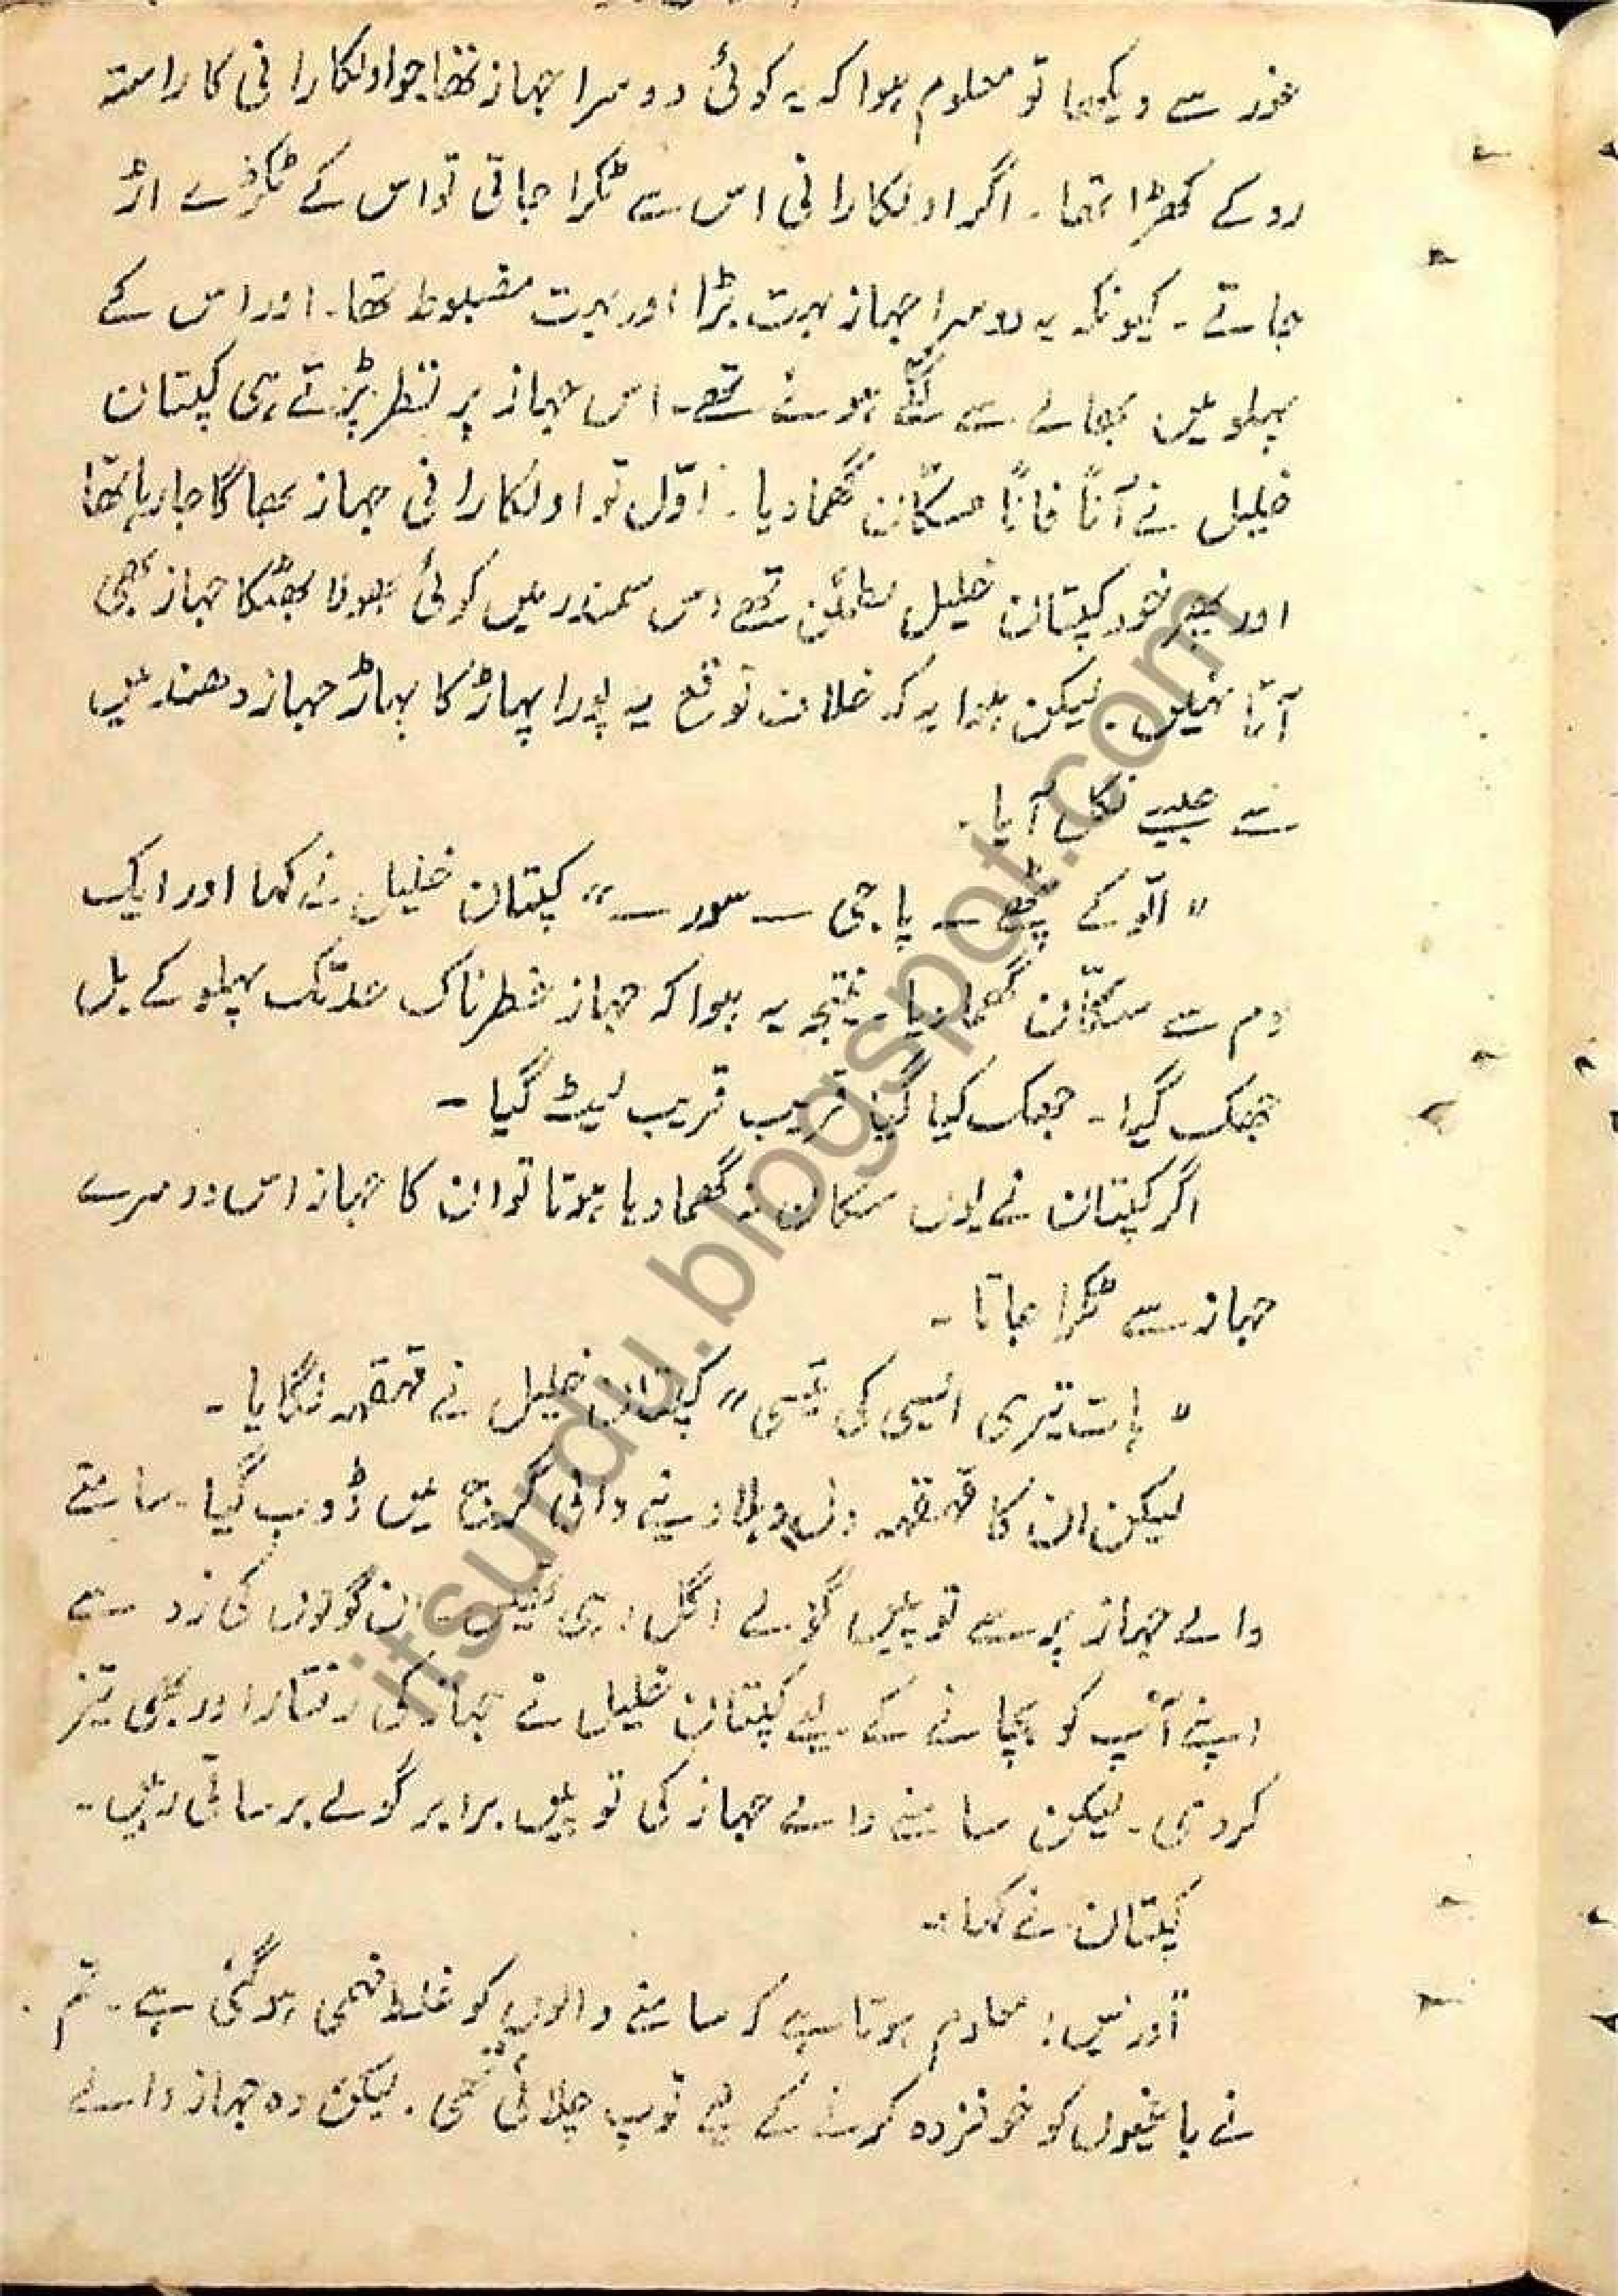 غور سے دیکھا تو معلوم ہوا کہ یہ کوئی دوسرا جہاز تھا جو اولکارانی کا راستہ
روکے کھڑا تھا۔ اگر اولکارانی اس سے ٹکرا جاتی تو اس کے ٹکڑے اڑ
جاتے۔ کیونکہ یہ دوسرا جہاز بہت بڑا اور بہت مضبوط تھا۔ اور اس کے
پہلو میں بھالے سے لگے ہوئے تھے۔ اس جہاز پر نظر پڑتے ہی کپتان
خلیل نے آناً فاناً سکّان گھما دیا۔ اوّل تو اولکارانی جہاز بھاگا جا رہا تھا
اور پھر خود کپتان خلیل مطمئن تھے اس سمندر میں کوئی بھولا بھٹکا جہاز بھی
آتا نہیں۔ لیکن ہوا یہ کہ خلاف توقع یہ پورا پہاڑ کا پہاڑ جہاز دھند میں
سے جیسے نکل آیا۔
"الّو کے پٹھے ــ پاجی ــ سور ــ" کپتان خلیل نے کہا اور ایک
دم سے سکّان گھما دیا۔ نتیجہ یہ ہوا کہ جہاز خطرناک حد تک پہلو کے بل
جھک گیا۔ جھک کیا گیا قریب قریب لیٹ گیا۔
اگر کپتان نے یوں سکان نہ گھما دیا ہوتا تو ان کا جہاز اس دوسرے
جہاز سے ٹکرا جاتا۔
"ہات تیری ایسی کی تیسی" کپتان خلیل نے قہقہہ لگایا۔
لیکن ان کا قہقہہ دل دہلا دینے والی گرج میں ڈوب گیا۔ سامنے
والے جہاز پر سے توپیں گولے اگل رہی تھیں۔ ان گولوں کی زد سے
اپنے آپ کو بچانے کے لیے کپتان خلیل نے جہاز کی رفتار اور بھی تیز
کر دی۔ لیکن سامنے والے جہاز کی توپیں برابر گولے برساتی رہیں۔
کپتان نے کہا۔
"اورنیس! معلوم ہوتا ہے کہ سامنے والوں کو غلط فہمی ہو گئی ہے۔ تم
نے باغیوں کو خوفزدہ کرنے کے لیے توپ چلائی تھی۔ لیکن وہ جہاز والے
itsurdu.blogspot.com